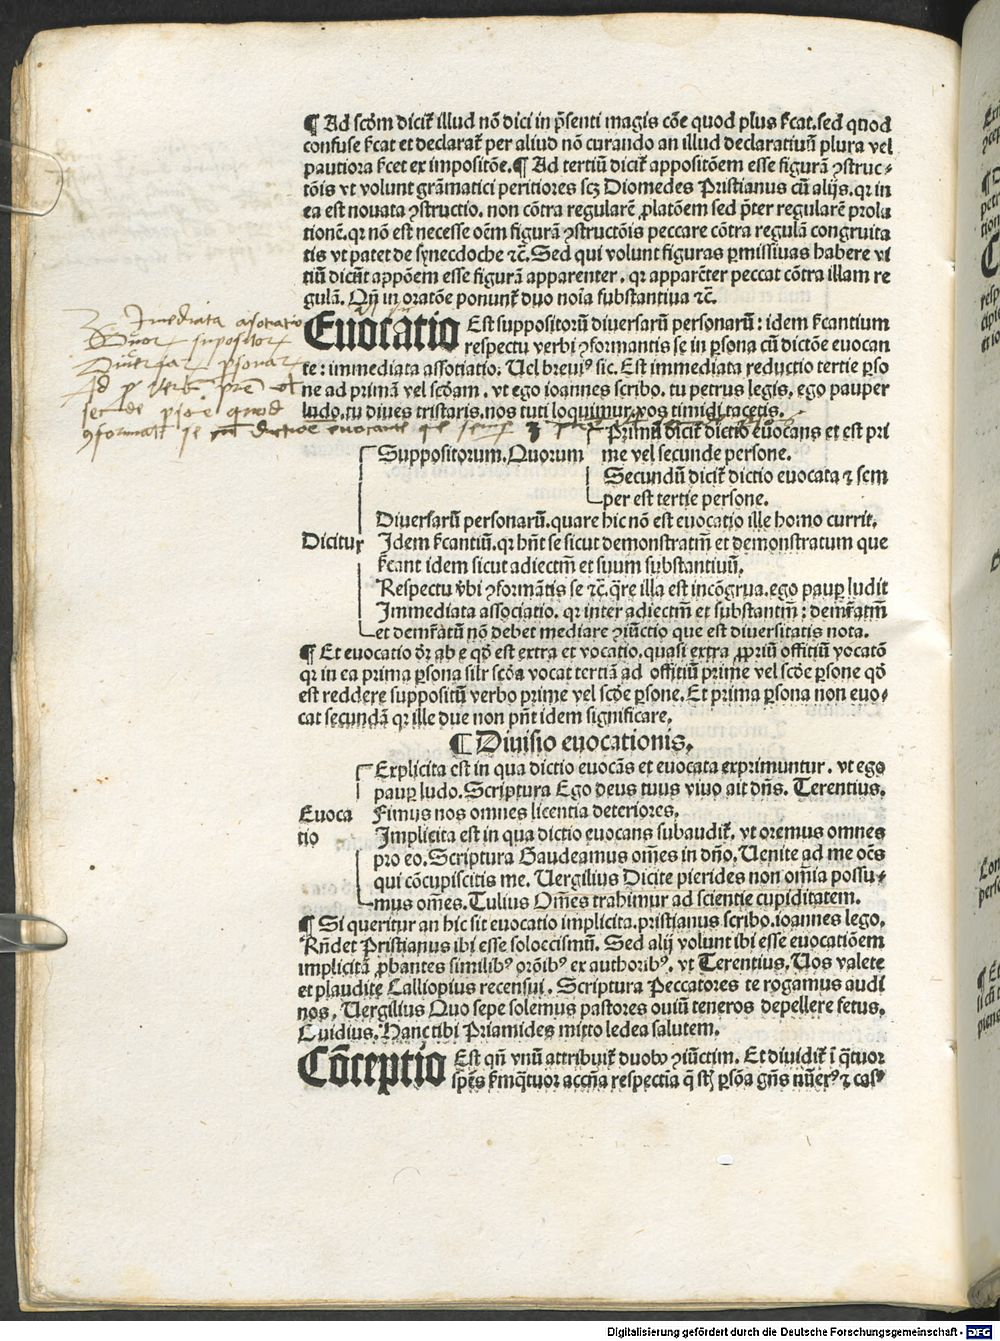 ¶ Ad scḋm dicit̄ illud nō dici in p̄senti magis cōe quod plus s̄cat. sed quod
confuse s̄cat et declarat̄ per aliud nō curando an illud declaratiuū plura vel
pautiora s̄cet ex impositōe. ¶ Ad tertiū dicit̄ appositōem esse figurā ꝯstruc⸗
tōis vt volunt grāmatici peritiores scꝫ Diomedes Pristianus cū alijs. qꝛ in
ea est nouata ꝯstructio. non cōtra regularē ꝓlatōem sed p̄ter regularē prola
tionē. qꝛ nō est necesse oēm figurā ꝯstructōis peccare cōtra regulā congruita
tis vt patet de synecdoche ⁊c̄. Sed qui volunt figuras ꝑmissiuas habere vi
tiū dicūt appōem esse figurā apparenter. qꝛ apparēter peccat cōtra illam re
gulā. Qn̄ in oratōe ponunt̄ duo noīa substantiua ⁊c̄.
Euocatio Est suppositorū diuersarū personarū: idem s̄cantium
respectu verbi ꝯformantis se in ꝑsona cū dictōe euocan
te: immediata assotiatio. Uel breuiꝰ sic. Est immediata reductio tertie ꝑso
ne ad primā vel scḋam. vt ego ioannes scribo. tu petrus legis. ego pauper
ludo. tu diues tristaris. nos tuti loquimur. vos timidi tacetis.
Immediata asotiatio
duorum supositor
diuersar psonar
secunde psone quod
ꝯformatt se dictioe euocante
Prima dicit̄ dictio euocans et est pri
Suppositorum. Quorum me vel secunde persone.
Secundū dicit̄ dictio euocata ⁊ sem
per est tertie persone.
Diuersarū personarū. quare hic nō est euocatio ille homo currit.
Dicitur Idem s̄cantiū. qꝛ hn̄t se sicut demonstratm̄ et demonstratum que
s̄cant idem sicut adiectm̄ et suum substantiuū.
Respectu v̄bi ꝯformātis se ⁊c̄. q̄re illa est incōgrua. ego paupꝑ ludit
Immediata associatio. qꝛ inter adiectm̄ et substantm̄: demr̄atm̄
et demr̄atū nō debet mediare ꝯiūctio que est diuersitatis nota.
¶ Et euocatio dr̄ ab e qḋ est extra et vocatio. quasi extra ꝓpriū offitiū vocatō
qꝛ in ea prima ꝑsona silr̄ scḋa vocat tertiā ad offitiū prime vel scḋe ꝑsone qḋ
est reddere suppositū verbo prime vel scḋe ꝑsone. Et prima ꝑsona non euo⸗
cat secundā qꝛ ille due non pn̄t idem significare.
¶ Diuisio euocationis.
Explicita est in qua dictio euocās et euocata exprimuntur. vt ego
pauꝑ ludo. Scriptura Ego deus tuus viuo ait dn̄s. Terentius.
Euoca Fimus nos omnes licentia deteriores.
tio Implicita est in qua dictio euocans subaudit̄. vt oremus omnes
pro eo. Scriptura Gaudeamus om̄es in dn̄o. Uenite ad me oēs
qui cōcupiscitis me. Uergilius Dicite pierides non om̄ia possu⸗
mus om̄es. Tulius Om̄es trahimur ad scientie cupiditatem.
¶ Si queritur an hic sit euocatio implicita. pristianus scribo. ioannes lego.
Rn̄det Pristianus ibi esse soloccismū. Sed alij volunt ibi esse euocatiōem
implicitā ꝓbantes similibꝰ orōibꝰ ex authoribꝰ. vt Terentius. Uos valete
et plaudite Calliopius recensui. Scriptura Peccatores te rogamus audi
nos. Uergilius Quo sepe solemus pastores ouiū teneros depellere fetus.
Ouidius. Hanc tibi Priamides mitto ledea salutem.
Cōceptio Est qn̄ vnū attribuit̄ duobꝰ ꝯiūctim. Et diuidit̄ ī q̄tuor
spēs s̄m q̄tuor accn̄a respectia q̄ st̄ ꝑsōa gn̄s nūerꝰ ⁊ casꝰ
Digitalisierung gefördert durch die Deutsche Forschungsgemeinschaft - DFG